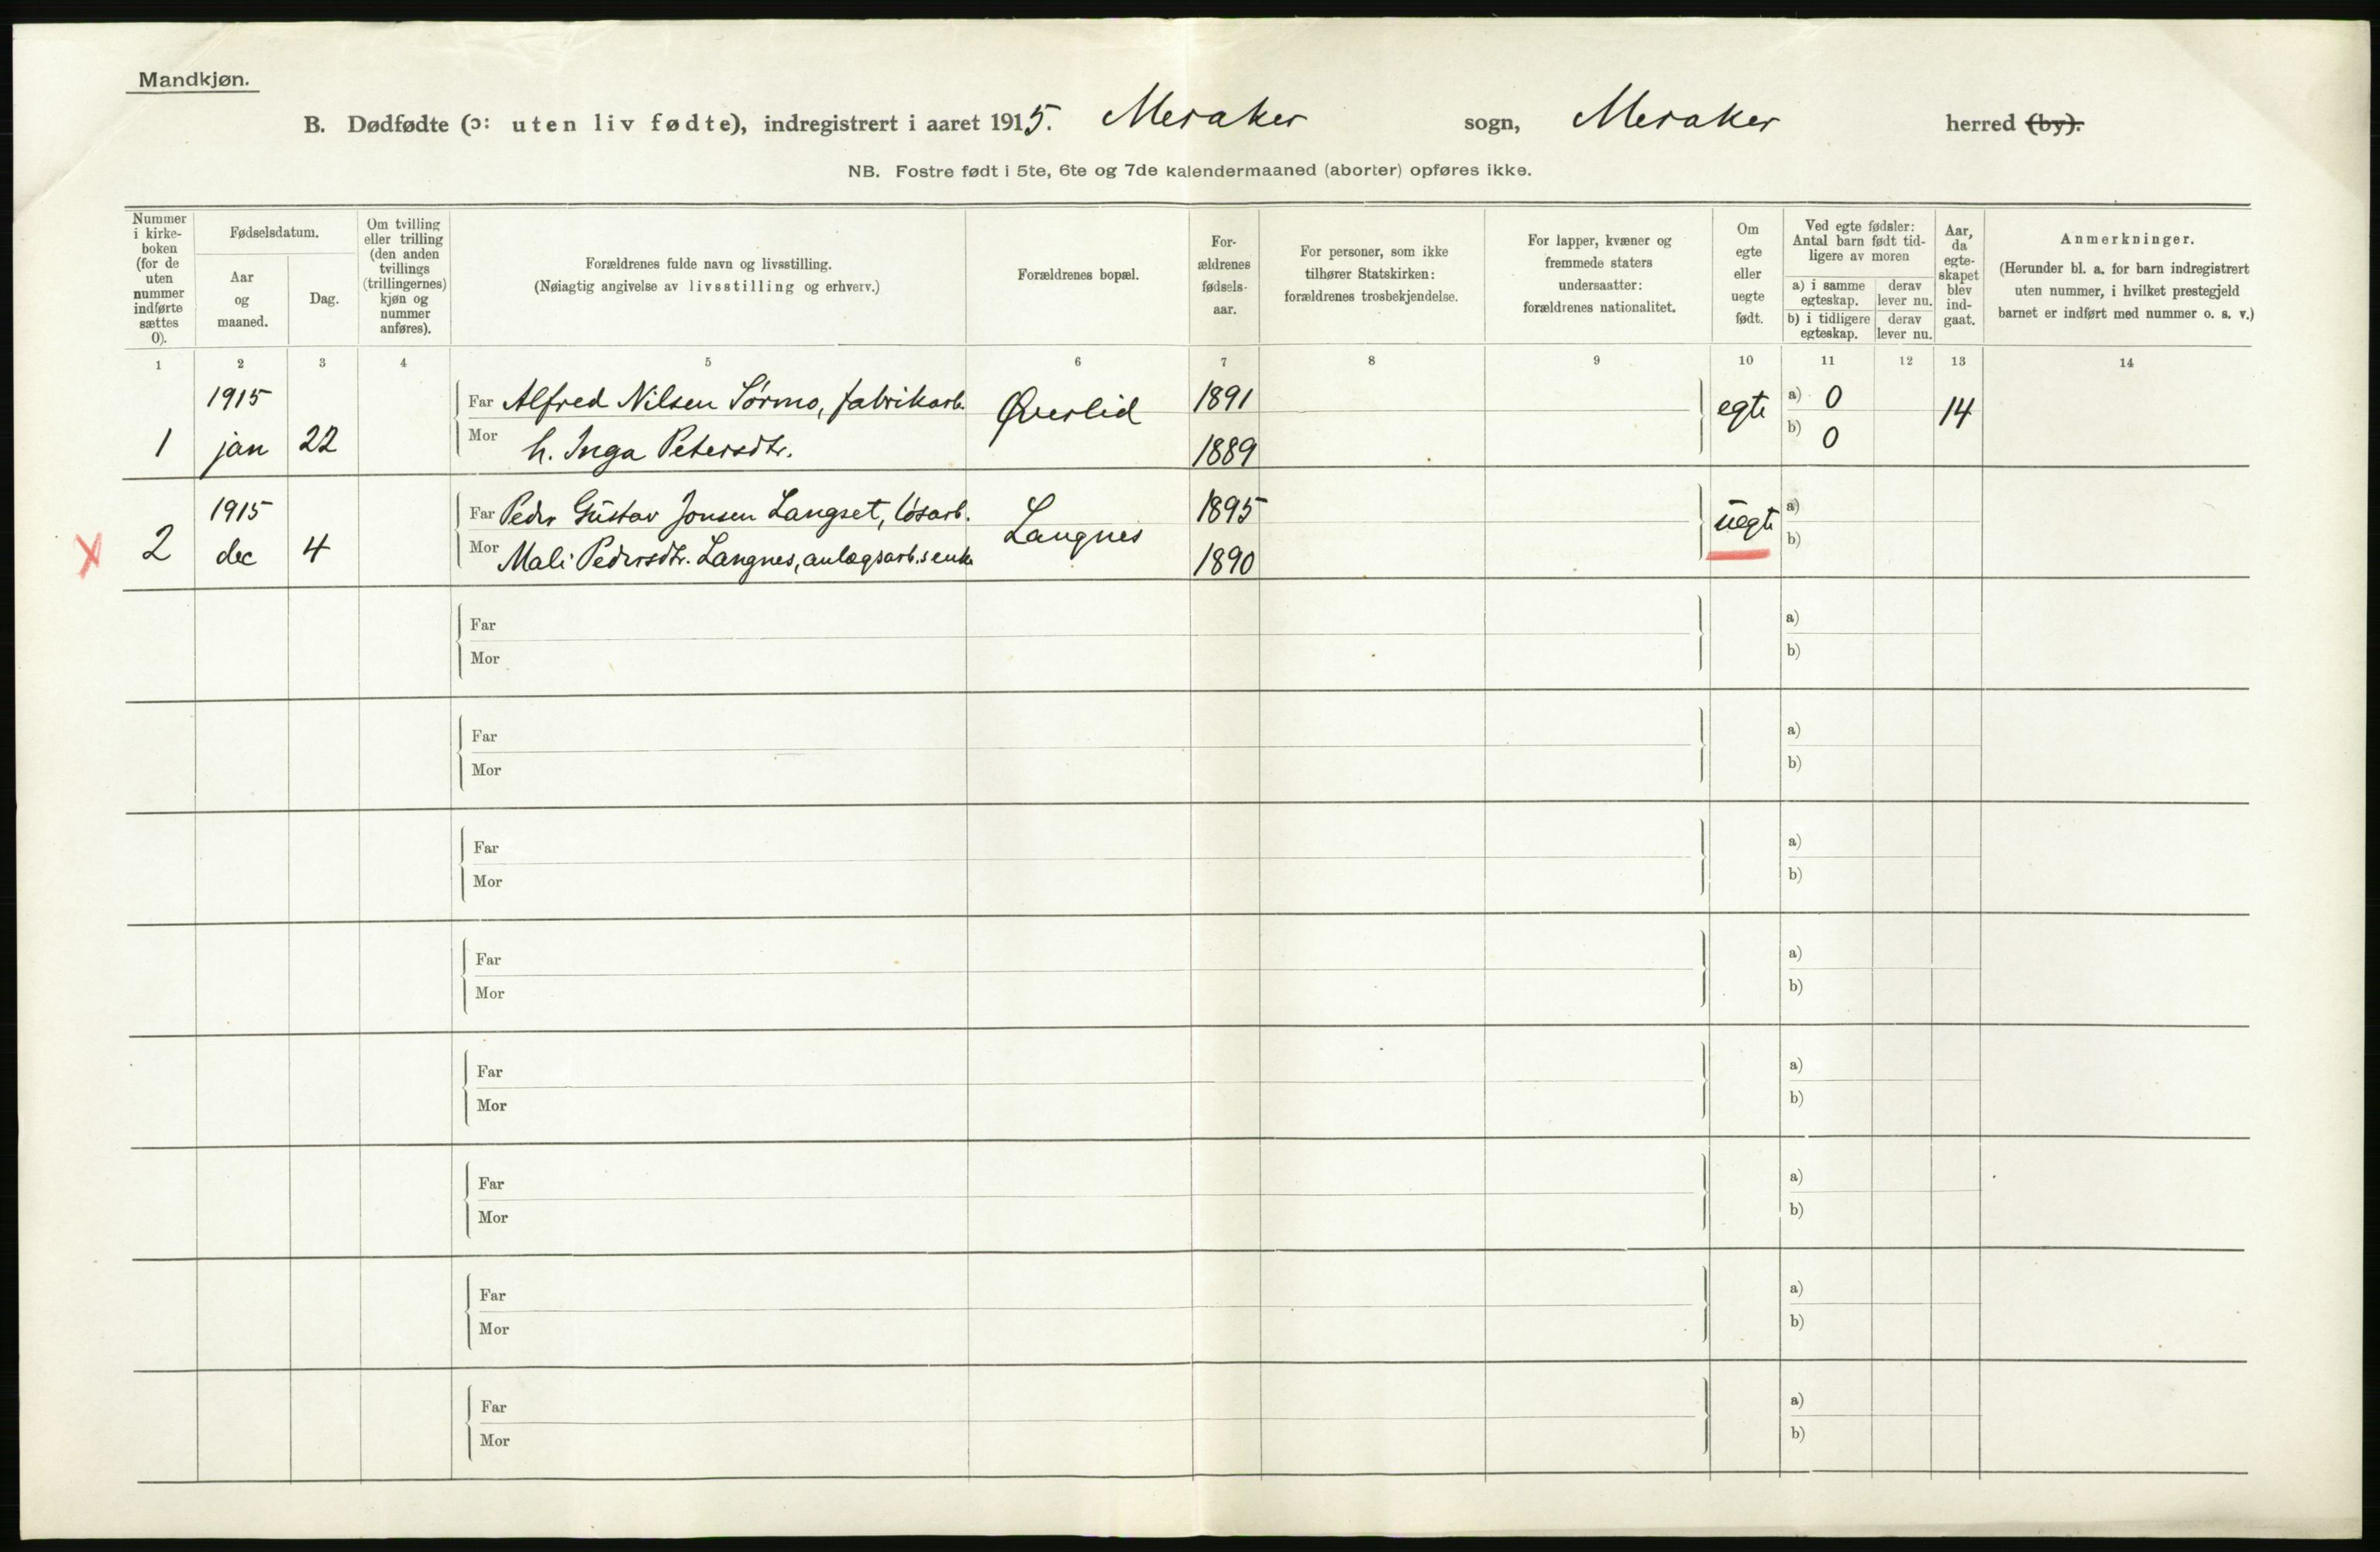 Mandkjøn.
B. Dødfødte (ɔ: uten liv fødte), indregistrert i aaret 1915. Meraker sogn, Meraker herred (by).
NB. Fostre født i 5te, 6te og 7de kalendermaaned (aborter) opføres ikke.
Nummer
i kirke-
boken
(for de
uten
nummer
indførte
sættes
0).
Fødselsdatum.
Aar
og
maaned.
Dag.
Om tvilling
eller trilling
(den anden
tvillings
(trillingernes)
kjøn og
nummer
anføres).
Forældrenes fulde navn og livsstilling.
(Nøiagtig angivelse av livsstilling og erhverv.)
Forældrenes bopæl.
For-
ældrenes
fødsels-
aar.
For personer, som ikke
tilhører Statskirken:
forældrenes trosbekjendelse.
For lapper, kvæner og
fremmede staters
undersaatter:
forældrenes nationalitet.
Om
egte
eller
uegte
født.
Ved egte fødsler:
Antal barn født tid-
ligere av moren
a) i samme
egteskap.
derav
lever nu.
b) i tidligere
egteskap.
derav
lever nu.
Aar,
da
egte-
skapet
blev
ind-
gaat.
Anmerkninger.
(Herunder bl. a. for barn indregistrert
uten nummer, i hvilket prestegjeld
barnet er indført med nummer o. s. v.)
1 2 3 4 5 6 7 8 9 10 11 12 13 14
1915 Far Alfred Nilsen Sørmo, fabrikarb. Øverlid 1891 egte a) 0 14
1 jan 22 Mor h. Inga Petersdtr. 1889 b) 0
1915 Far Peder Gustav Jonsen Langset, løsarb. Langnes 1895 uegte a)
X 2 dec 4 Mor Mali Pedersdtr. Langnes, anlægsarb.s enke 1890 b)
Far a)
Mor b)
Far a)
Mor b)
Far a)
Mor b)
Far a)
Mor b)
Far a)
Mor b)
Far a)
Mor b)
Far a)
Mor b)
Far a)
Mor b)